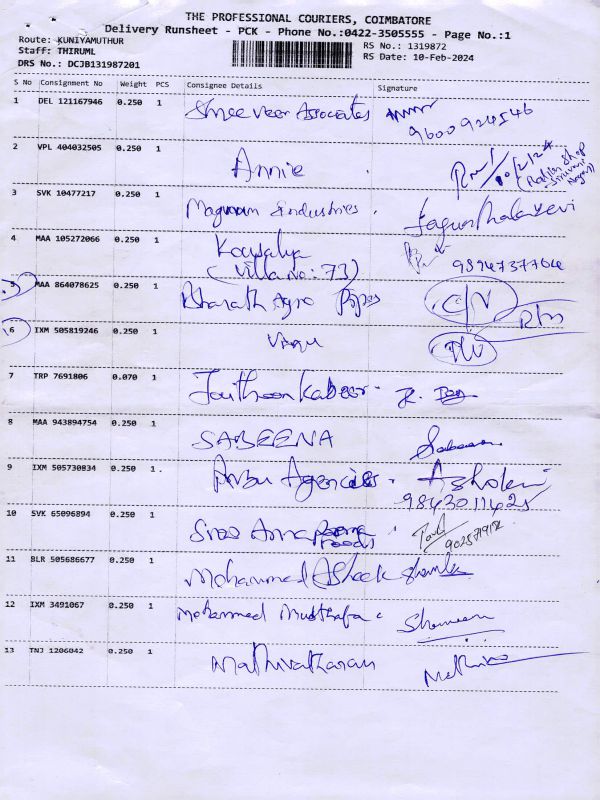 THE PROFESSIONAL COURIERS, COIMBATORE
Delivery Runsheet - PCK - Phone No.:0422-3505555 - Page No.:1
Route: KUNIYAMUTHUR
Staff: THIRUML
DRS No.: DCJB131987201
RS No.: 1319872
RS Date: 10-Feb-2024
S No Consignment No Weight PCS Consignee Details Signature
1 DEL 121167946 0.250 1 Shree Veer Associates
9600924546
2 VPL 404032505 0.250 1 Annie
3 SVK 10477217 0.250 1 Magnum Industries
4 MAA 105272066 0.250 1 Kowsalya
(Villa No: 73) 9894737764
5 MAA 864078625 0.250 1 Bharath Agro Pipes
6 IXM 505819246 0.250 1
7 TRP 7691806 0.070 1 Jaithoon Kabeer
8 MAA 943894754 0.250 1 SABEENA
9 IXM 505730834 0.250 1 Anbu Agencies
9843011425
10 SVK 65096894 0.250 1 Sree Annapoorna
Foods
11 BLR 505686677 0.250 1 Mohammed Asheek
12 IXM 3491067 0.250 1 Mohammed Musthafa
13 TNJ 1206042 0.250 1 Mathivathanan